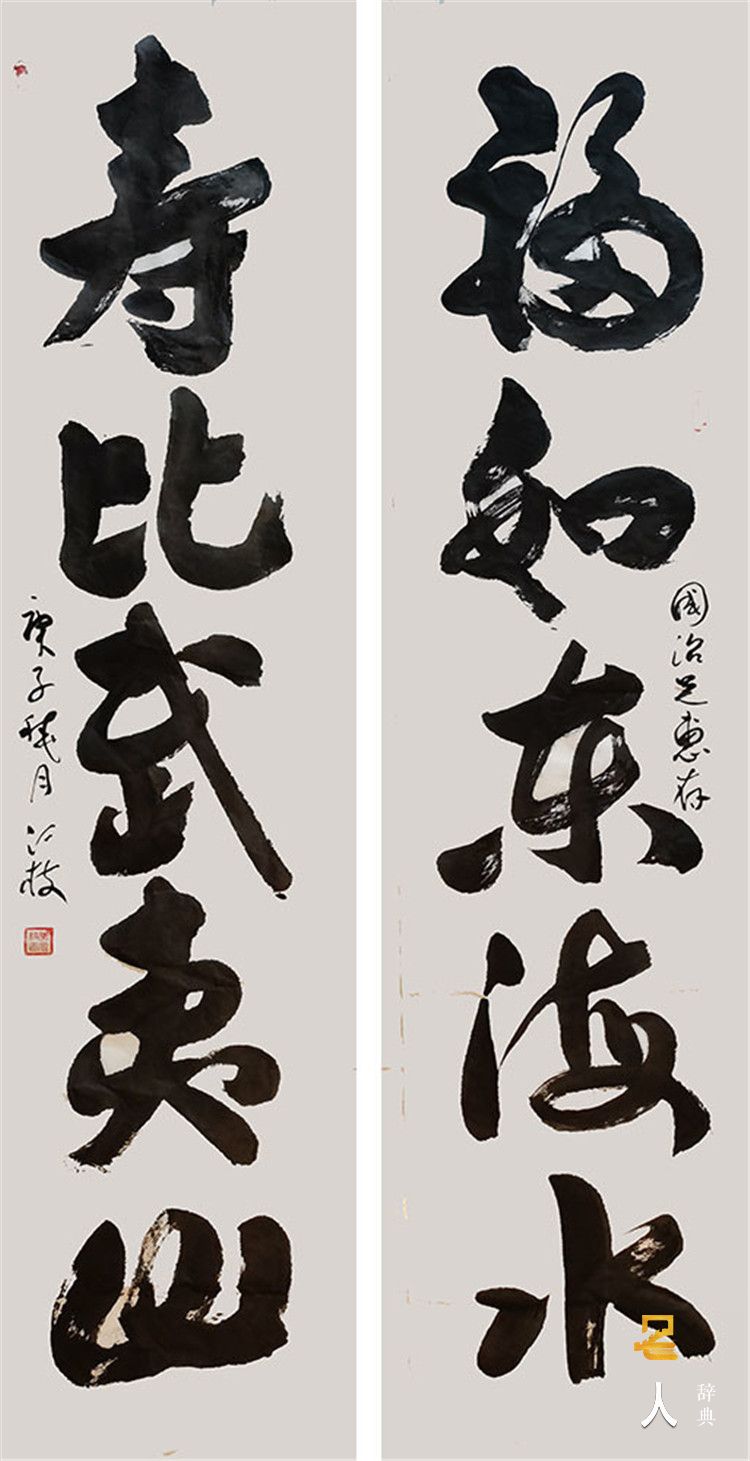 福如东海水
国治兄惠存
寿比武夷山
庚子秋月 江枝
名人
辞典